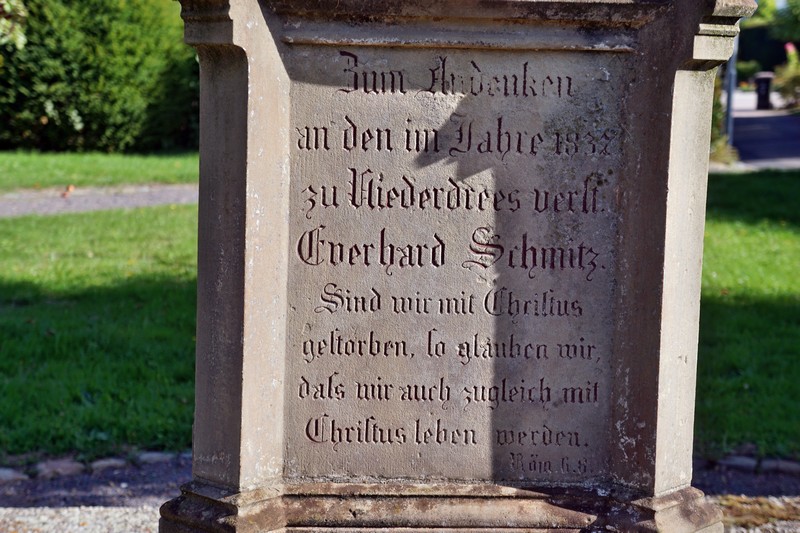 Zum Andenken
an den im Jahre 1832
zu Niederdrees verst.
Everhard Schmitz.
Sind wir mit Christus
gestorben, so glauben wir,
dass wir auch zugleich mit
Christus leben werden.
Röm. 6.8.